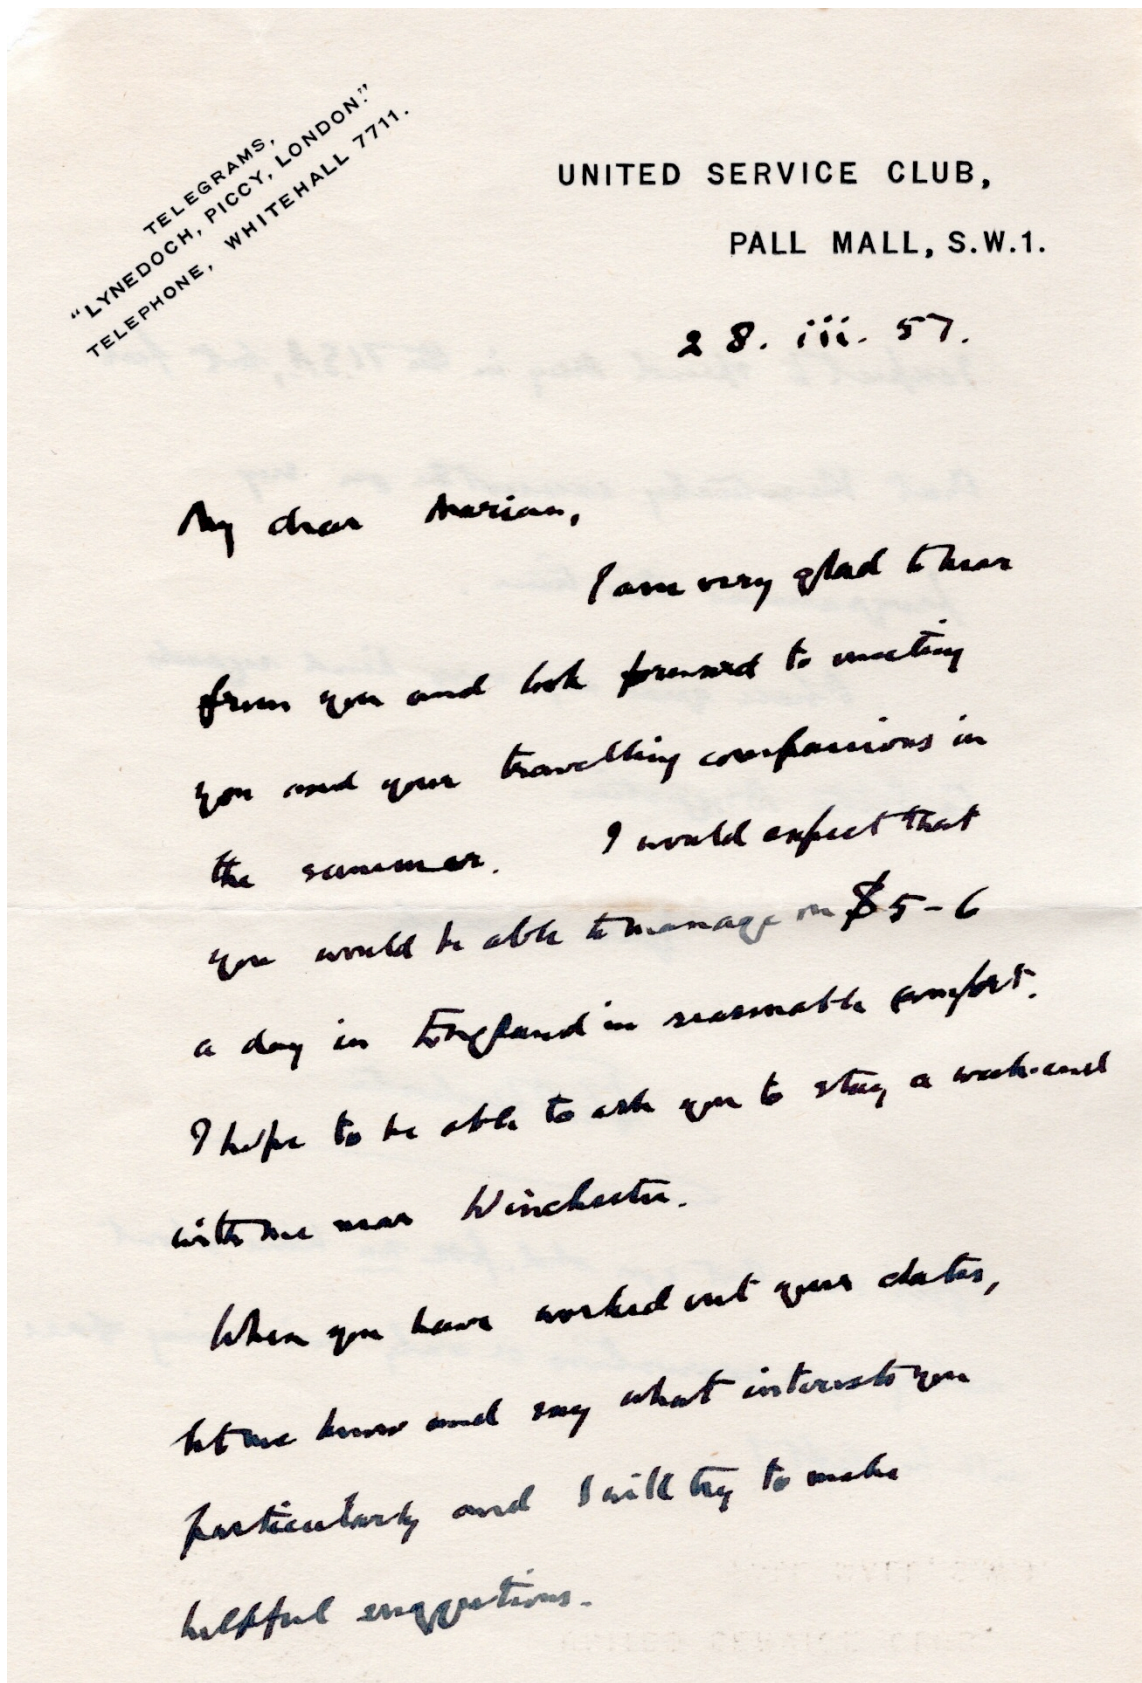 TELEGRAMS,
"LYNEDOCH, PICCY, LONDON."
TELEPHONE, WHITEHALL 7711.
UNITED SERVICE CLUB,
PALL MALL, S.W.1.
28. iii. 57.
My dear Marian,
I am very glad to hear
from you and look forward to meeting
you and your travelling companions in
the summer. I would expect that
you would be able to manage on $5-6
a day in England in reasonable comfort.
I hope to be able to ask you to stay a week-end
with me near Winchester.
When you have worked out your dates,
let me know and say what interests you
particularly and I will try to make
helpful suggestions.